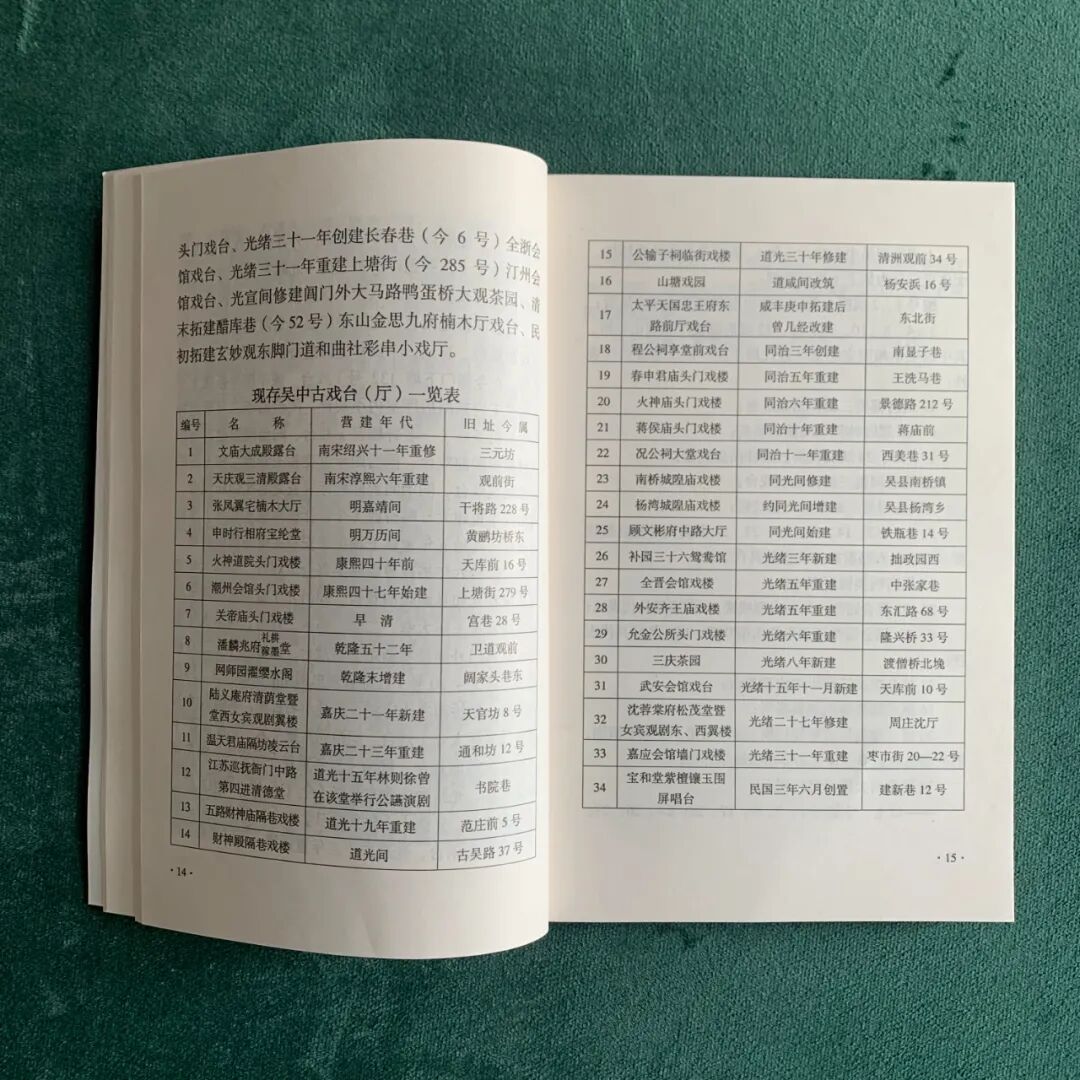 头门戏台、光绪三十一年创建长春巷（今 6 号）全浙会
馆戏台、光绪三十一年重建上塘街（今 285 号）汀州会
馆戏台、光宣间修建阊门外大马路鸭蛋桥大观茶园、清
末拓建醋库巷（今 52 号）东山金思九府楠木厅戏台、民
初拓建玄妙观东脚门道和曲社彩串小戏厅。
现存吴中古戏台（厅）一览表
编号 名 称 营 建 年 代 旧 址 今 属
1 文庙大成殿露台 南宋绍兴十一年重修 三元坊
2 天庆观三清殿露台 南宋淳熙六年重建 观前街
3 张凤翼宅楠木大厅 明嘉靖间 干将路 228 号
4 申时行相府宝纶堂 明万历间 黄鹂坊桥东
5 火神道院头门戏楼 康熙四十年前 天库前 16 号
6 潮州会馆头门戏楼 康熙四十七年始建 上塘街 279 号
7 关帝庙头门戏楼 早 清 宫巷 28 号
8 潘麟兆府礼拱稼墨堂 乾隆五十二年 卫道观前
9 网师园濯缨水阁 乾隆末增建 阔家头巷东
10 陆义庵府清荫堂暨
堂西女宾观剧翼楼 嘉庆二十一年新建 天官坊 8 号
11 温天君庙隔坊凌云台 嘉庆二十三年重建 通和坊 12 号
12 江苏巡抚衙门中路
第四进清德堂 道光十五年林则徐曾
在该堂举行公讌演剧 书院巷
13 五路财神庙隔巷戏楼 道光十九年重建 范庄前 5 号
14 财神殿隔巷戏楼 道光间 古吴路 37 号
· 14 ·
15 公输子祠临街戏楼 道光三十年修建 清洲观前 34 号
16 山塘戏园 道咸间改筑 杨安浜 16 号
17 太平天国忠王府东
路前厅戏台 咸丰庚申拓建后
曾几经改建 东北街
18 程公祠享堂前戏台 同治三年创建 南显子巷
19 春申君庙头门戏楼 同治五年重建 王洗马巷
20 火神庙头门戏楼 同治六年重建 景德路 212 号
21 蒋侯庙头门戏楼 同治十年重建 蒋庙前
22 况公祠大堂戏台 同治十一年重建 西美巷 31 号
23 南桥城隍庙戏楼 同光间修建 吴县南桥镇
24 杨湾城隍庙戏楼 约同光间增建 吴县杨湾乡
25 顾文彬府中路大厅 同光间始建 铁瓶巷 14 号
26 补园三十六鸳鸯馆 光绪三年新建 拙政园西
27 全晋会馆戏楼 光绪五年重建 中张家巷
28 外安齐王庙戏楼 光绪五年重建 东汇路 68 号
29 允金公所头门戏楼 光绪六年重建 隆兴桥 33 号
30 三庆茶园 光绪八年新建 渡僧桥北堍
31 武安会馆戏台 光绪十五年十一月新建 天库前 10 号
32 沈蓉棠府松茂堂暨
女宾观剧东、西翼楼 光绪二十七年修建 周庄沈厅
33 嘉应会馆墙门戏楼 光绪三十一年重建 枣市街 20—22 号
34 宝和堂紫檀镶玉围
屏唱台 民国三年六月创置 建新巷 12 号
· 15 ·